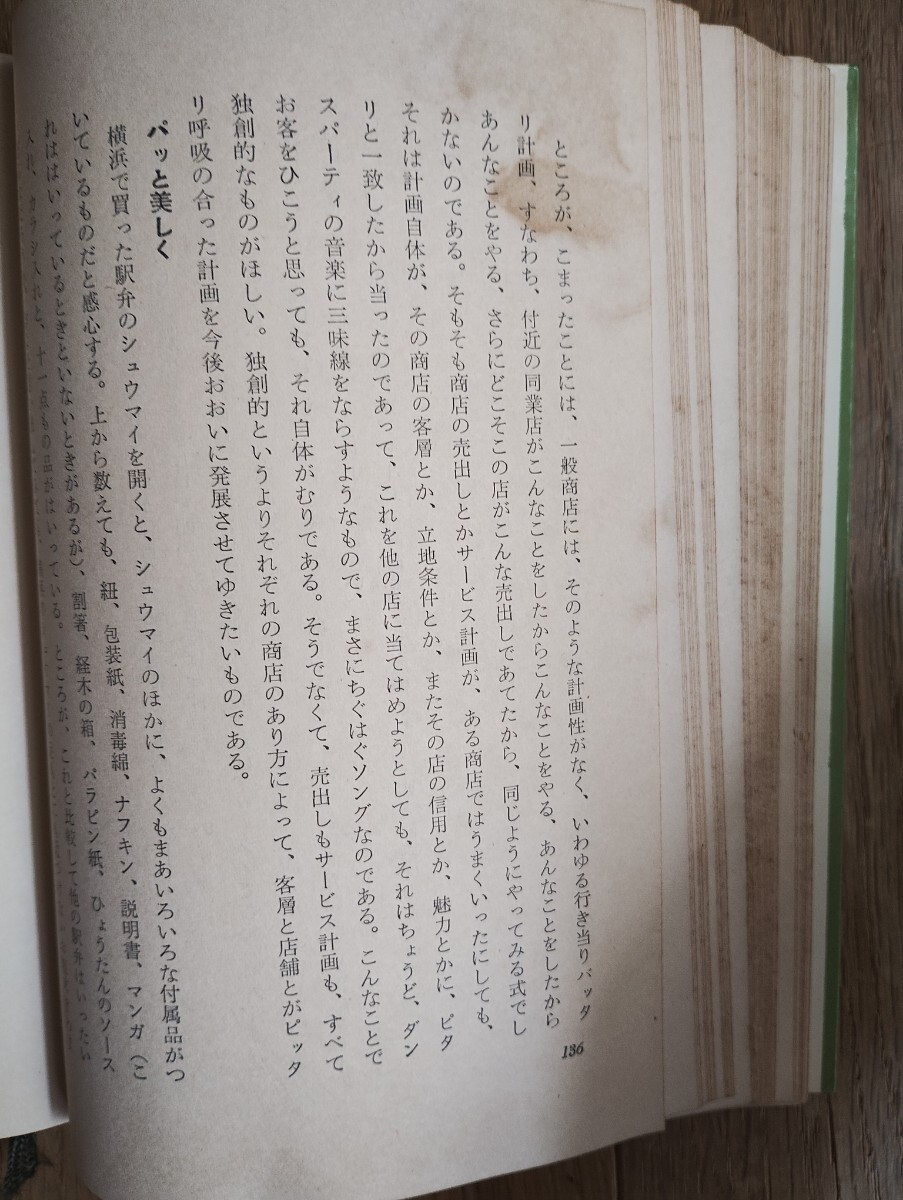 ところが、こまったことには、一般商店には、そのような計画性がなく、いわゆる行き当りバッタ
リ計画、すなわち、付近の同業店がこんなことをしたからこんなことをやる、あんなことをしたから
あんなことをやる、さらにどこそこの店がこんな売出しであてたから、同じようにやってみる式でし
かないのである。そもそも商店の売出しとかサービス計画が、ある商店ではうまくいったにしても、
それは計画自体が、その商店の客層とか、立地条件とか、またその店の信用とか、魅力とかに、ピタ
リと一致したから当ったのであって、これを他の店に当てはめようとしても、それはちょうど、ダン
スパーティの音楽に三味線をならすようなもので、まさにちぐはぐソングなのである。こんなことで
お客をひこうと思っても、それ自体がむりである。そうでなくて、売出しもサービス計画も、すべて
独創的なものがほしい。独創的というよりそれぞれの商店のあり方によって、客層と店舗とがピッタ
リ呼吸の合った計画を今後おおいに発展させてゆきたいものである。
パッと美しく
横浜で買った駅弁のシュウマイを開くと、シュウマイのほかに、よくもまあいろいろな付属品がつ
いているものだと感心する。上から数えても、紐、包装紙、消毒綿、ナフキン、説明書、マンガ（こ
れははいっているときといないときがあるが）、割箸、経木の箱、パラピン紙、ひょうたんのソース
入れ、カラシ入れと、十一点もの品がはいっている。ところが、これと比較して他の駅弁はいったい
136